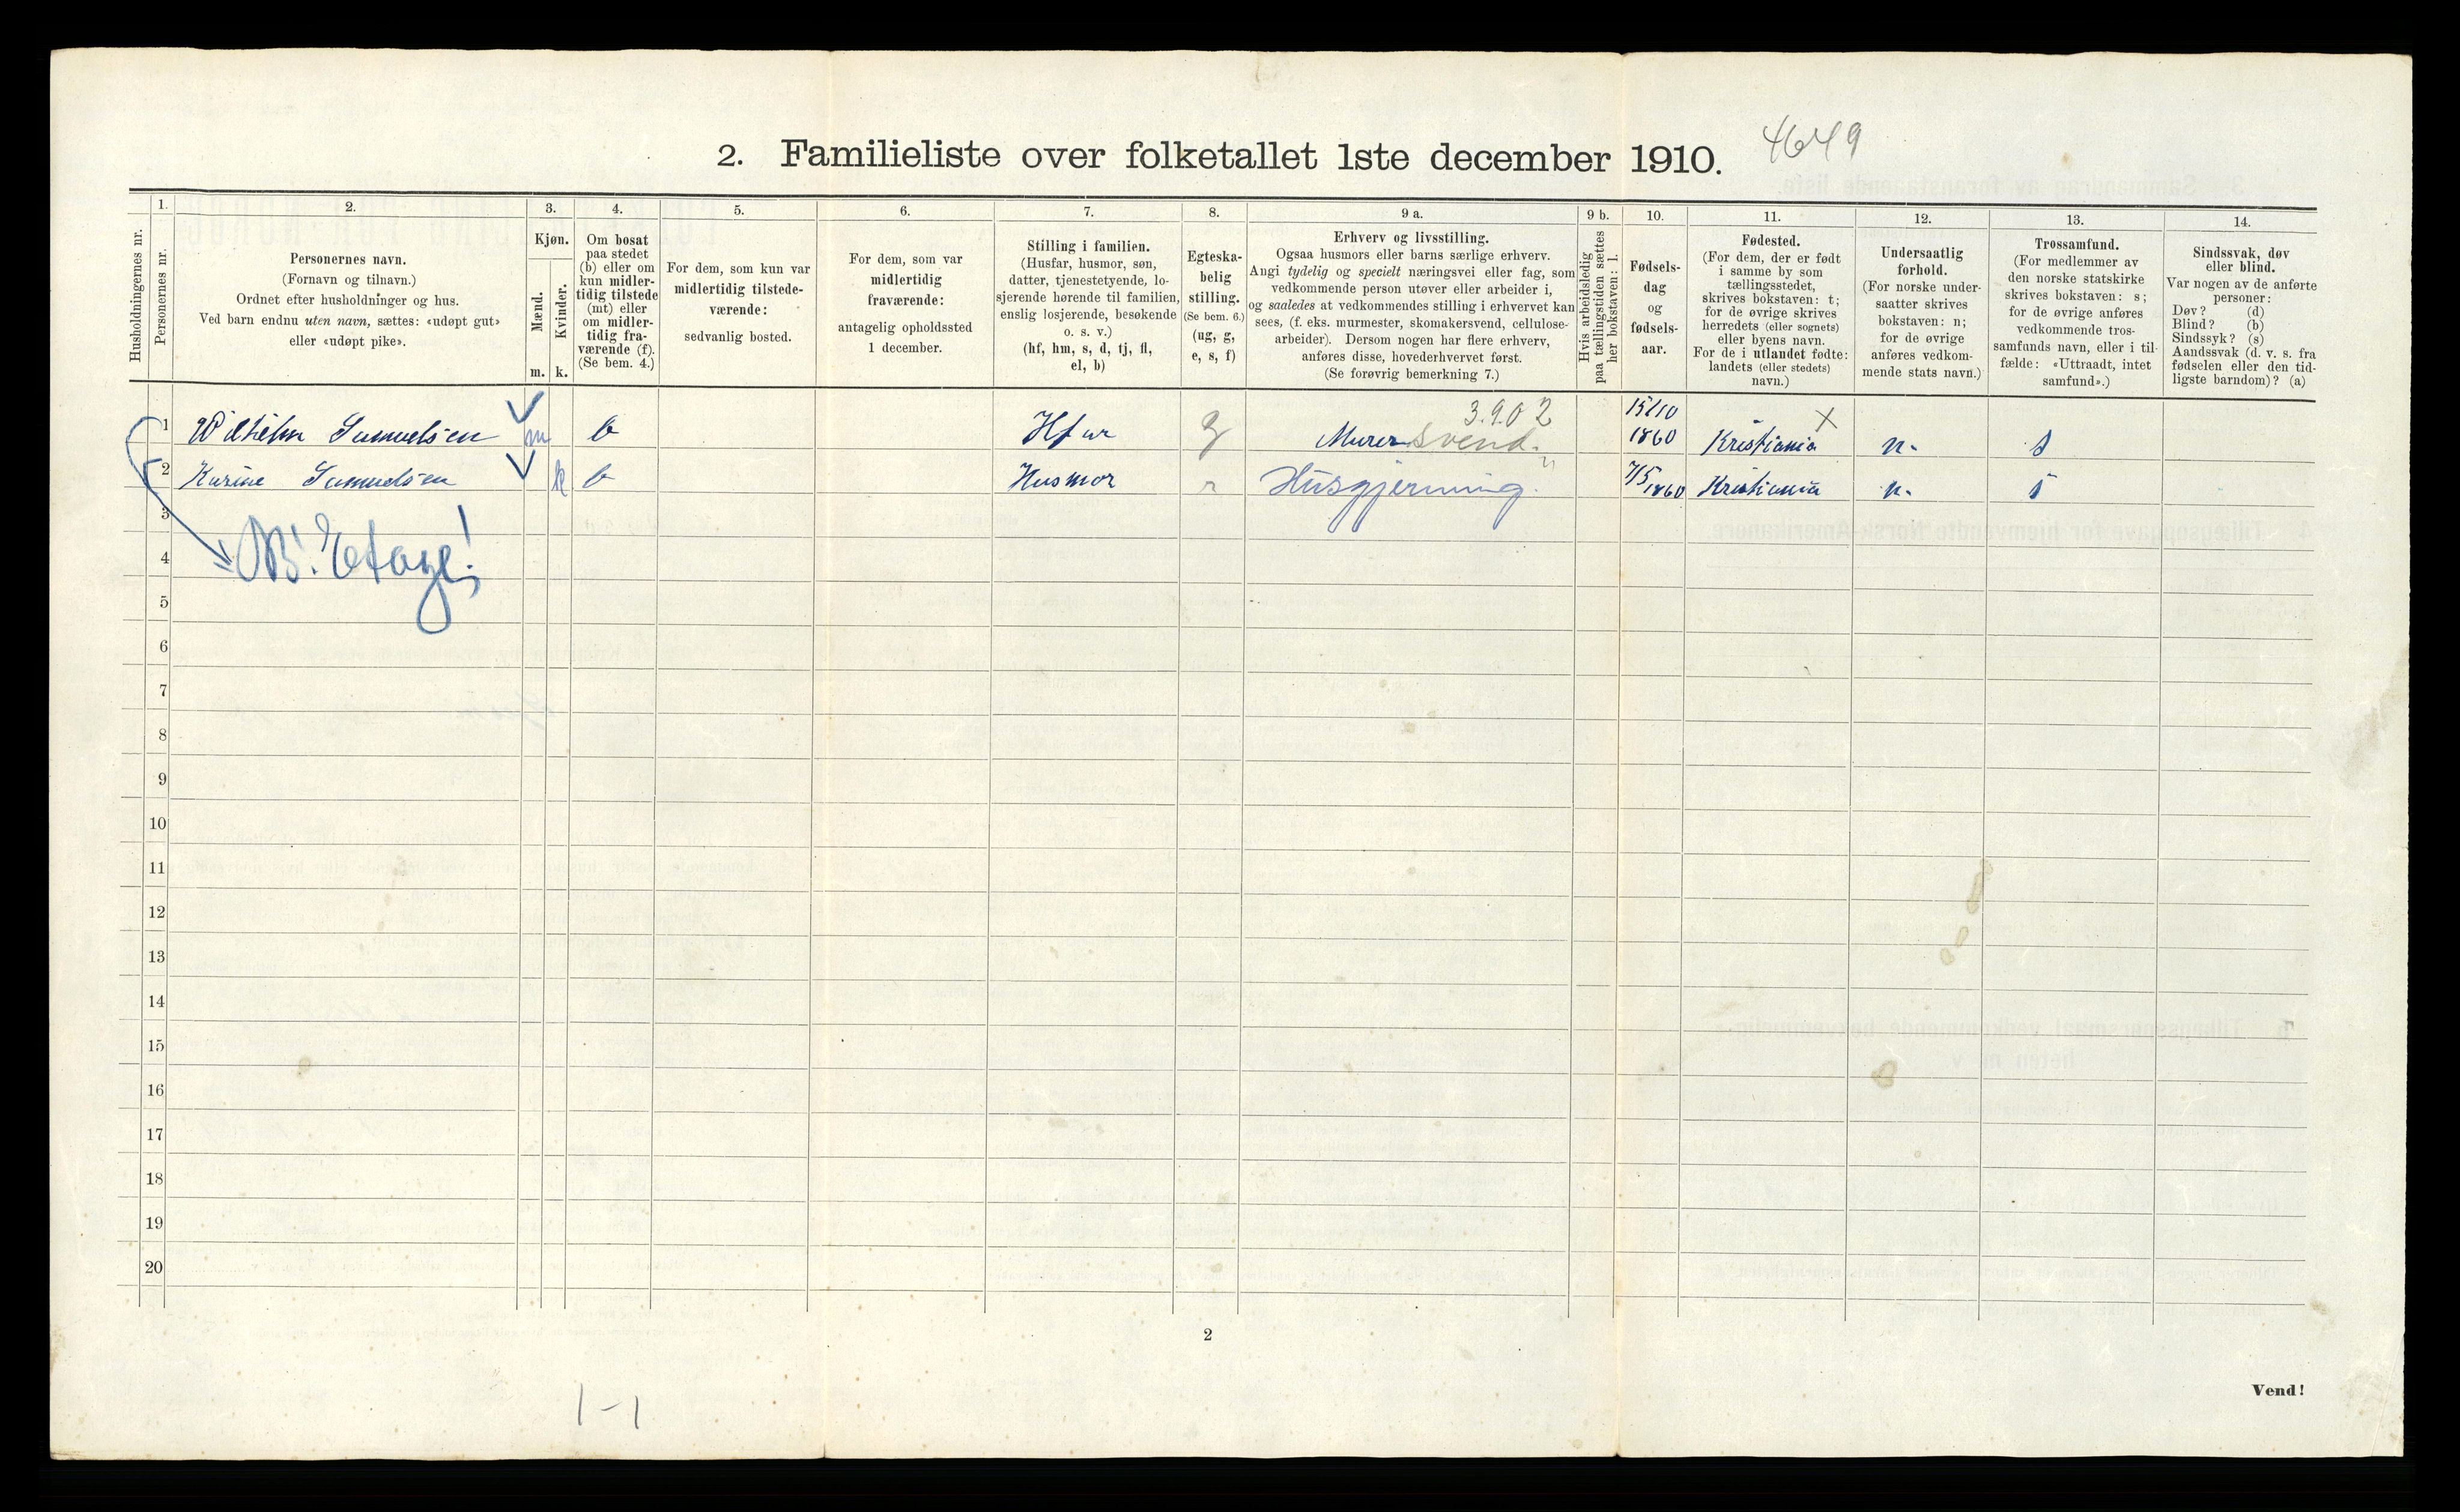 2. Familieliste over folketallet 1ste december 1910. 4649
Husholdningernes nr.
1.
Personernes nr.
2.
Personernes navn.
(Fornavn og tilnavn.)
Ordnet efter husholdninger og hus.
Ved barn endnu uten navn, sættes: «udøpt gut»
eller «udøpt pike».
3.
Kjøn.
Mænd.
m.
Kvinder.
k.
4.
Om bosat
paa stedet
(b) eller om
kun midler-
tidig tilstede
(mt) eller
om midler-
tidig fra-
værende (f).
(Se bem. 4.)
5.
For dem, som kun var
midlertidig tilstede-
værende:
sedvanlig bosted.
6.
For dem, som var
midlertidig
fraværende:
antagelig opholdssted
1 december.
7.
Stilling i familien.
(Husfar, husmor, søn,
datter, tjenestetyende, lo-
sjerende hørende til familien,
enslig losjerende, besøkende
o. s. v.)
(hf, hm, s, d, tj, fl,
el, b)
8.
Egteska-
belig
stilling.
(Se bem. 6.)
(ug, g,
e, s, f)
9 a.
Erhverv og livsstilling.
Ogsaa husmors eller barns særlige erhverv.
Angi tydelig og specielt næringsvei eller fag, som
vedkommende person utøver eller arbeider i,
og saaledes at vedkommendes stilling i erhvervet kan
sees, (f. eks. murmester, skomakersvend, cellulose-
arbeider). Dersom nogen har flere erhverv,
anføres disse, hovederhvervet først.
(Se forøvrig bemerkning 7.)
9 b.
Hvis arbeidsledig
paa tællingstiden sættes
her bokstaven: l.
10.
Fødsels-
dag
og
fødsels-
aar.
11.
Fødested.
(For dem, der er født
i samme by som
tællingsstedet,
skrives bokstaven: t;
for de øvrige skrives
herredets (eller sognets)
eller byens navn.
For de i utlandet fødte:
landets (eller stedets)
navn.)
12.
Undersaatlig
forhold.
(For norske under-
saatter skrives
bokstaven: n;
for de øvrige
anføres vedkom-
mende stats navn.)
13.
Trossamfund.
(For medlemmer av
den norske statskirke
skrives bokstaven: s;
for de øvrige anføres
vedkommende tros-
samfunds navn, eller i til-
fælde: «Uttraadt, intet
samfund».)
14.
Sindssvak, døv
eller blind.
Var nogen av de anførte
personer:
Døv? (d)
Blind? (b)
Sindssyk? (s)
Aandssvak (d. v. s. fra
fødselen eller den tid-
ligste barndom)? (a)
1 Wilhelm Samuelsen m b Hfar g 3.9.02 Murersvend. 15/10 1860 Kristiania X n. s
2 Karine Samuelsen k b Husmor Husgjerning. 7/5 1860 Kristiania n. s
3
4 NB! Etage!
5
6
7
8
9
10
11
12
13
14
15
16
17
18
19
20
2
1-1
Vend!